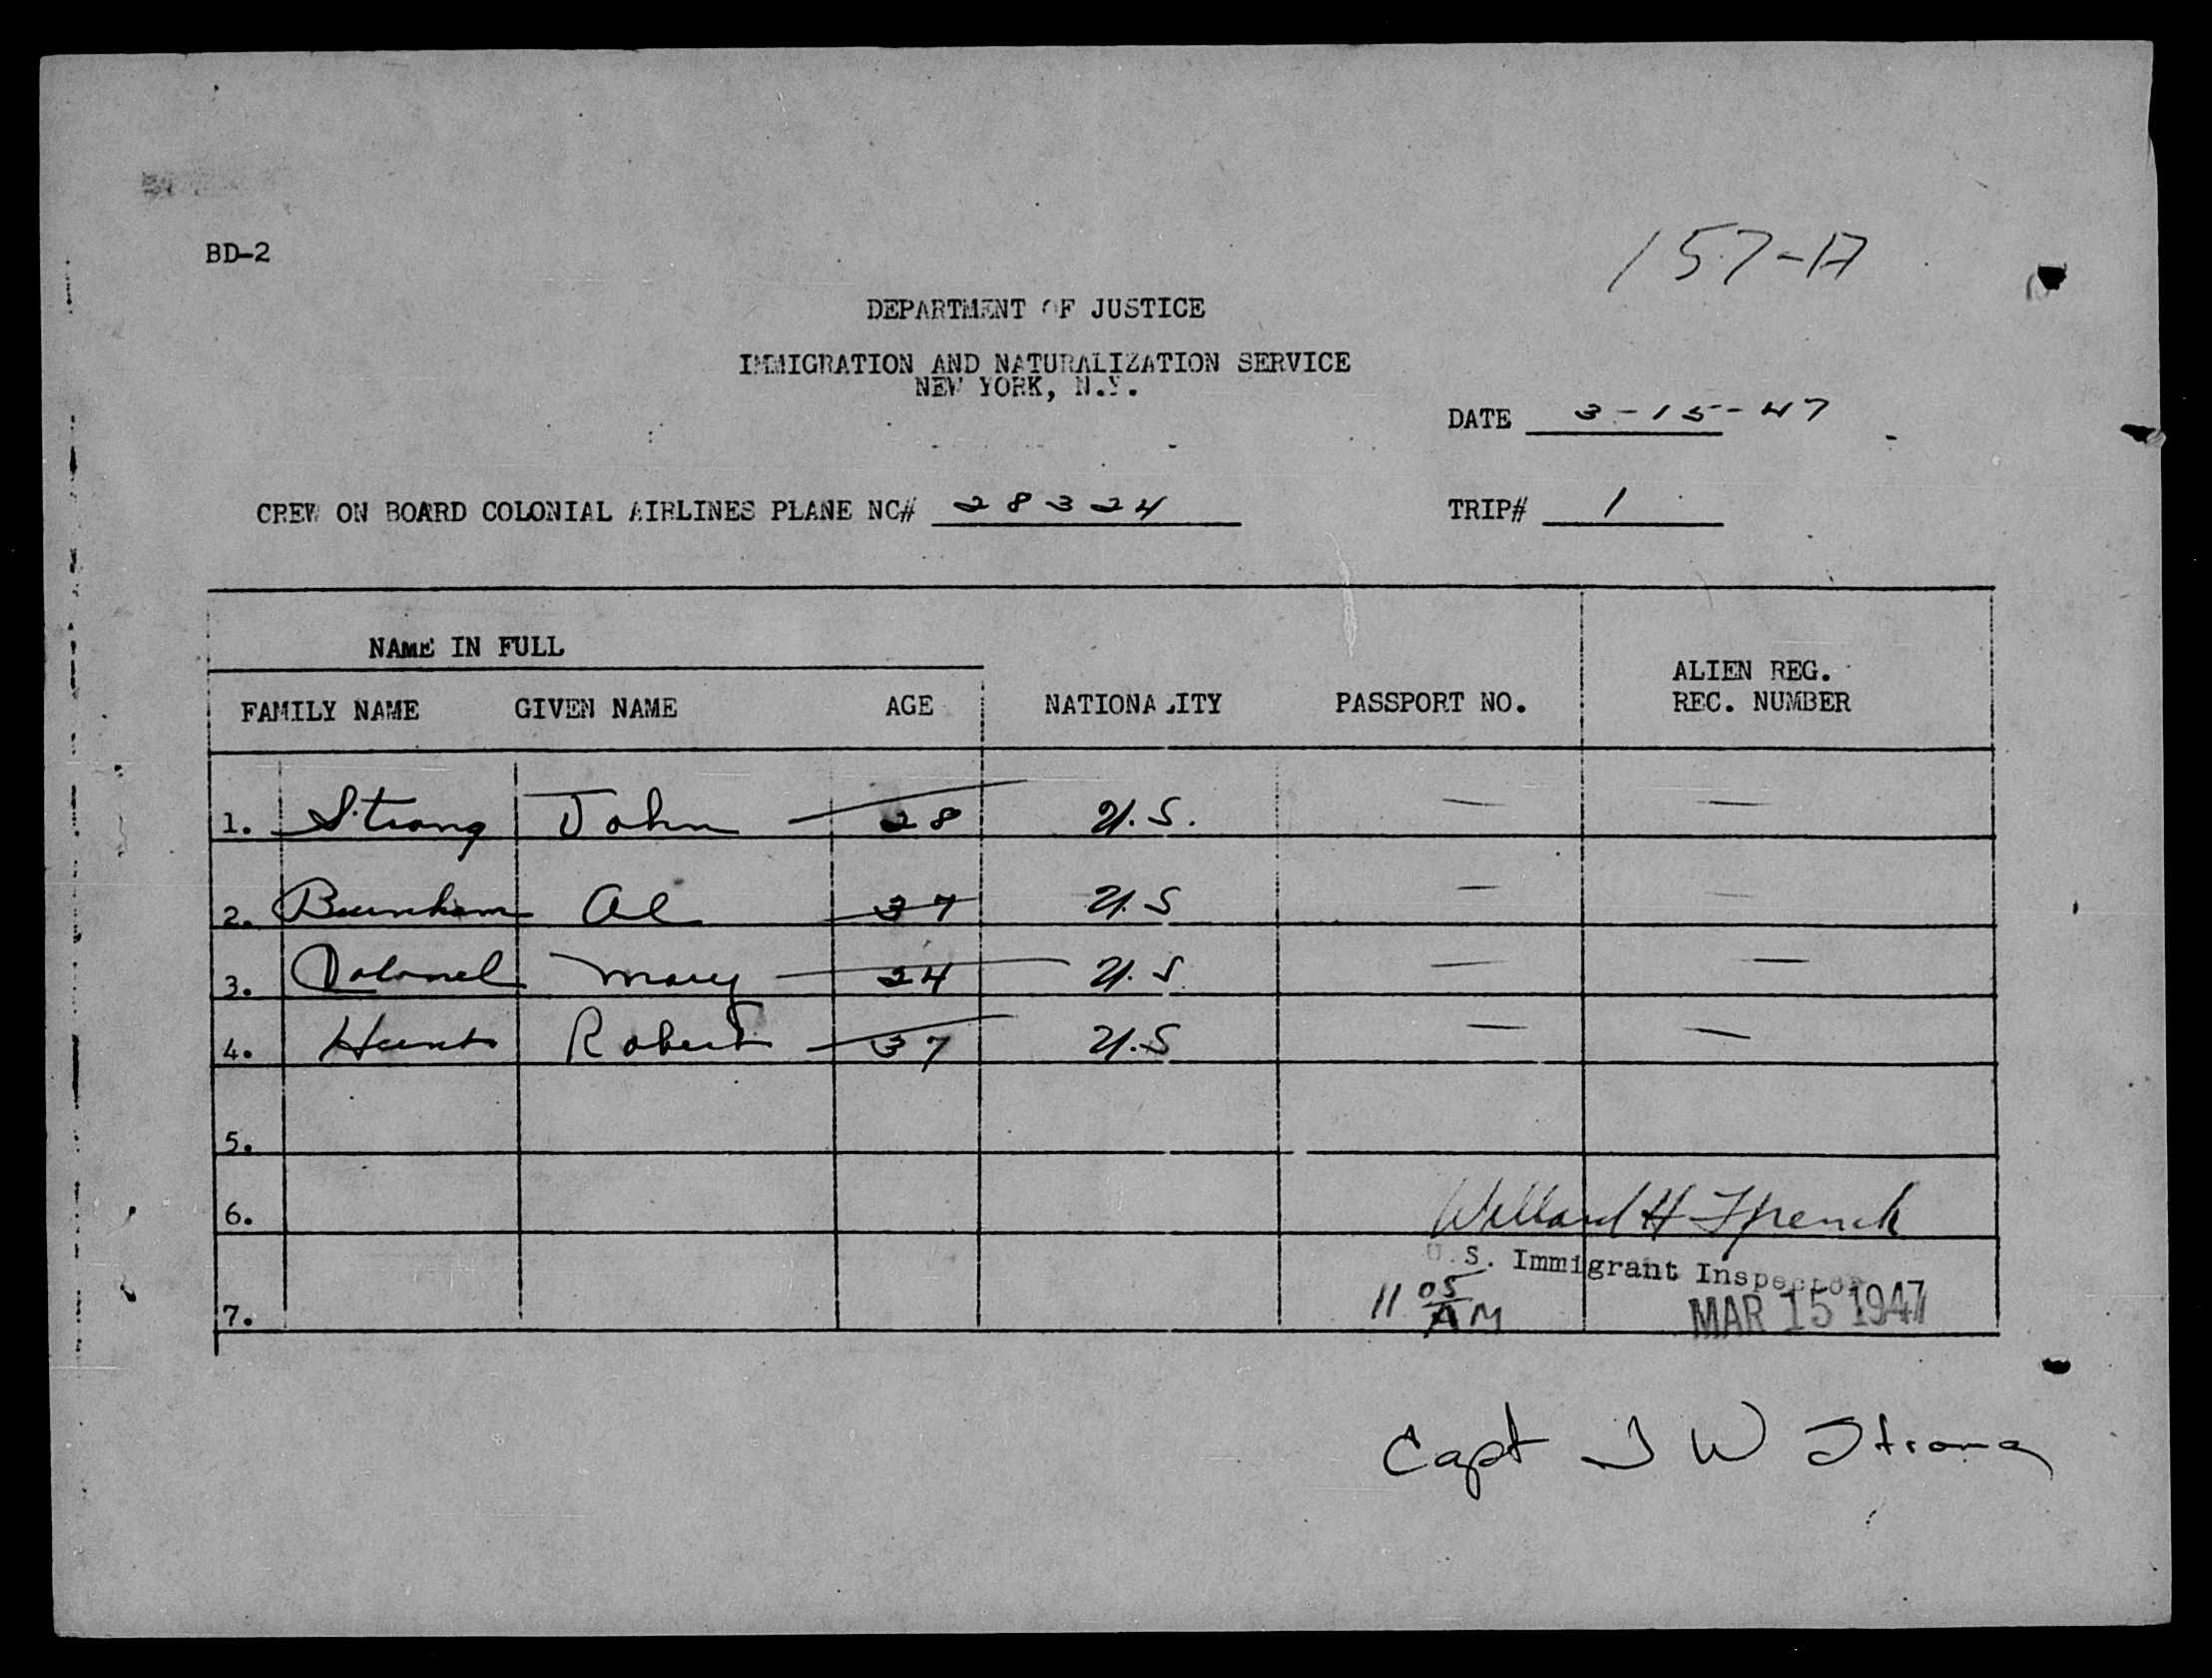 157-A
BD-2
DEPARTMENT OF JUSTICE
IMMIGRATION AND NATURALIZATION SERVICE
NEW YORK, N.Y.
DATE 3-15-47
CREW ON BOARD COLONIAL AIRLINES PLANE NC# 28324 TRIP# 1
NAME IN FULL
FAMILY NAME GIVEN NAME AGE NATIONALITY PASSPORT NO. ALIEN REG. REC. NUMBER
1. Strong John 28 U.S. — —
2. Burnham Al 37 U.S — —
3. Mary 24 U.S. — —
4. Hunt Robert 37 U.S — —
5.
6.
Willard H
U.S. Immigrant Inspector
7. 11 05 AM MAR 15 1947
Capt J W Strong